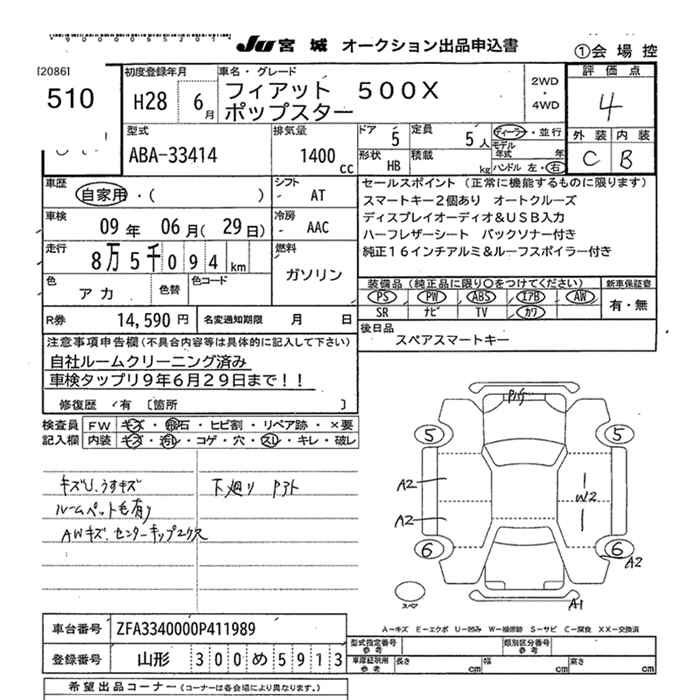 JU 宮城 オークション出品申込書
①会場控
[2086]
510
初度登録年月
H28 6月
車名・グレード
フィアット 500X
ポップスター
2WD
・
4WD
評価点
4
外装 内装
C B
型式
ABA-33414
排気量
1400cc
ドア 5
定員 5人
ディーラー・並行
モデル年式 年
形状 HB
積載 kg
ハンドル 左・右
車歴
自家用・( )
シフト
AT
車検
09年 06月(29日)
冷房
AAC
走行
8万5千094km
燃料
ガソリン
色
アカ
色替
色コード
R券 14,590円
名変通知期限 月 日
セールスポイント(正常に機能するものに限ります)
スマートキー2個あり オートクルーズ
ディスプレイオーディオ&USB入力
ハーフレザーシート バックソナー付き
純正16インチアルミ&ルーフスポイラー付き
装備品(純正品に限り○をつけてください)
新車保証書
PS PW ABS エアB AW
SR ナビ TV カワ
有・無
後日品
スペアスマートキー
注意事項申告欄(不具合内容等は具体的に記入して下さい)
自社ルームクリーニング済み
車検タップリ9年6月29日まで!!
修復歴 ・有 〔箇所 〕
検査員記入欄
FW キズ・飛石・ヒビ割・リペア跡・×要
内装 キズ・汚レ・コゲ・穴・スレ・キレ・破レ
キズU.うすキズ
下廻り Pアト
ルームペット毛有り
AWキズ.センターキャップ2ケ欠
5 5
A2
W2
A2
6 6
A2
スペア
A1
車台番号 ZFA3340000P411989
登録番号 山形 300 め 5913
A−キズ E−エクボ U−凹み W−補修跡 S−サビ C−腐食 XX−交換済
型式指定番号 参考
類別区分番号 参考
車庫証明用 参考 長さ cm 幅 cm 高さ cm
希望出品コーナー(コーナーは各会場により異なります。)